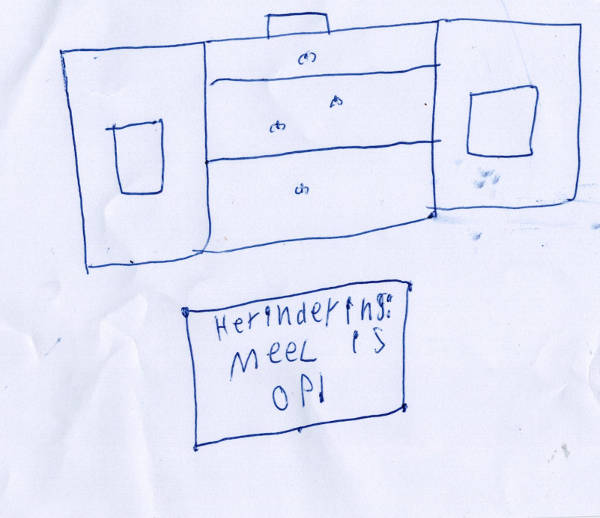 Herindering:
MEEL IS
OP!